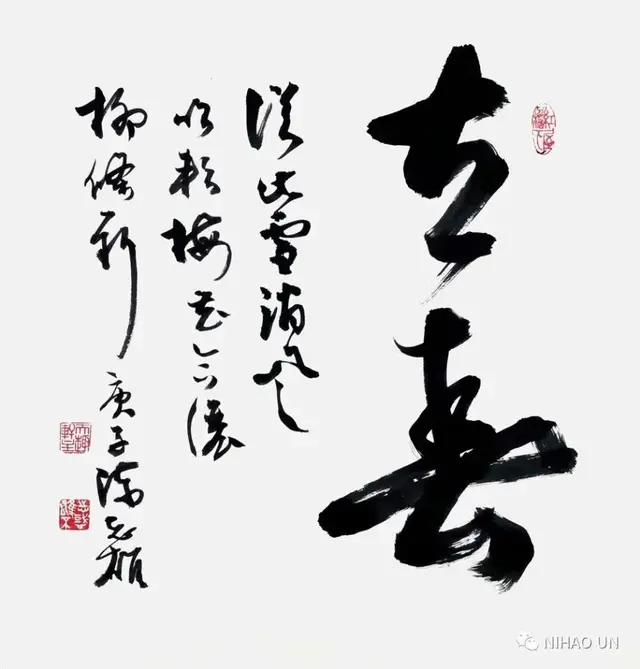 立春
從此雪消風
自軟梅花合讓
柳條新
庚子
NIHAO UN